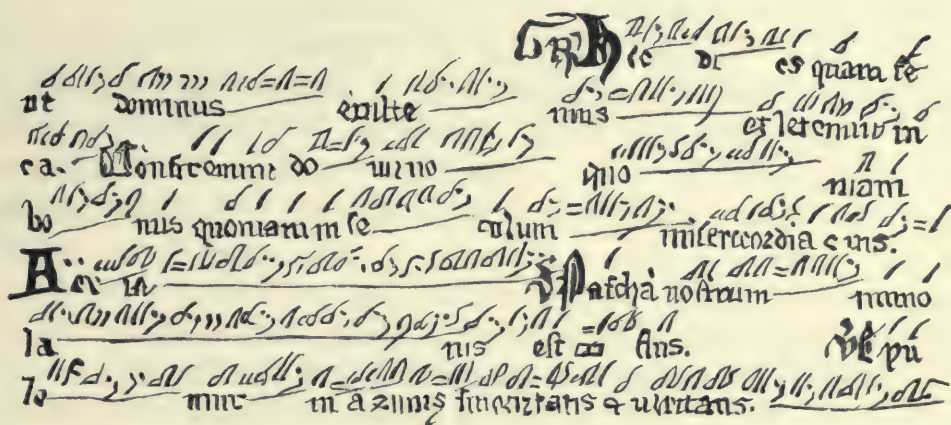 GR Hec di es quam fe
cit dominus exulte mus et letemur in
ea. Confitemini do mino quo niam
bo nus quoniam in se culum misericordia eius.
A e u ia V Pascha nostrum inmo
la tus est V Epu
le mur in azimis sinceritatis & ueritatis.